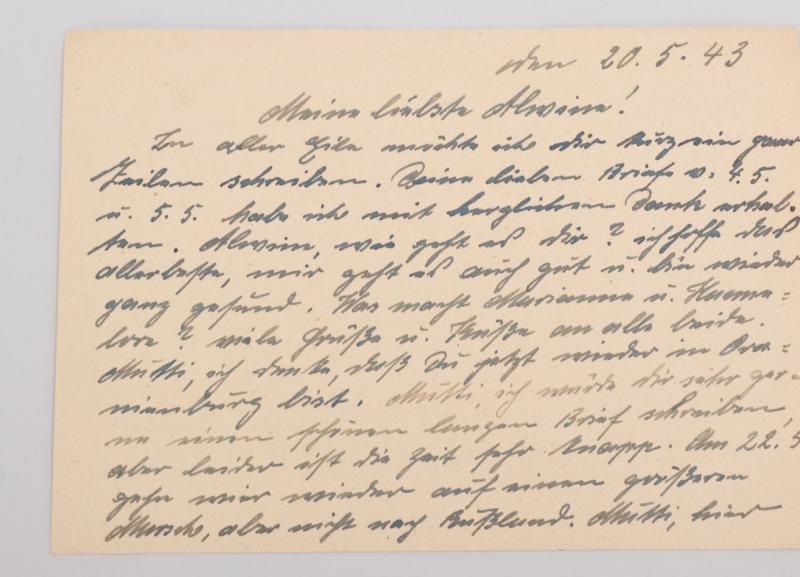 den 20.5.43
Meine liebste Alwine!
In aller Eile möchte ich dir kurz ein paar
Zeilen schreiben. Deine lieben Briefe v. 4.5.
u. 5.5. habe ich mit herzlichem Dank erhal-
ten. Alwine, wie geht es dir? ich hoffe das
allerbeste, mir geht es auch gut u. bin wieder
ganz gesund. Was macht Marianne u. Hanne=
lore? viele Grüße u. Küße an alle beide.
Mutti, ich denke, daß Du jetzt wieder in Ora=
nienburg bist. Mutti, ich würde dir sehr ger-
ne einen schönen langen Brief schreiben,
aber leider ist die Zeit sehr knapp. Am 22.5
gehn wier wieder auf einen größeren
Marsch, aber nicht nach Rußland. Mutti, hier